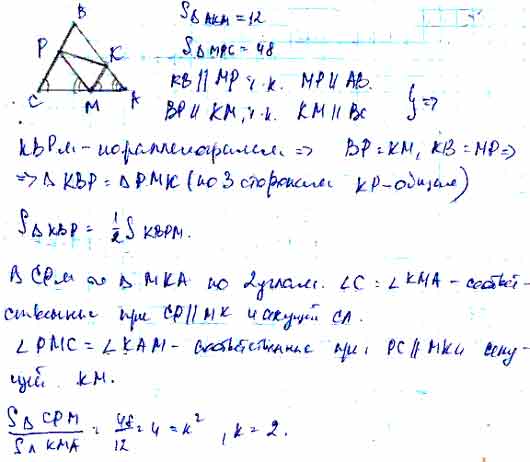 B
P
K
C
M
A
S△AKM = 12
S△MPC = 48
KB || MP т.к. MP || AB.
BP || KM, т.к. KM || BC
} =>
KBPM - параллелограмм => BP = KM, KB = MP =>
=> △KBP = △PMK (по 3 сторонам KP-общая)
S△KBP = 1/2 S KBPM.
△CPM ~ △MKA по 2 углам. ∠C = ∠KMA - соответ-
ственные при CP || MK и секущей CA.
∠PMC = ∠KAM - соответственные при PC || MK и секу-
щей KM.
S△CPM / S△KMA = 48/12 = 4 = k², k = 2.